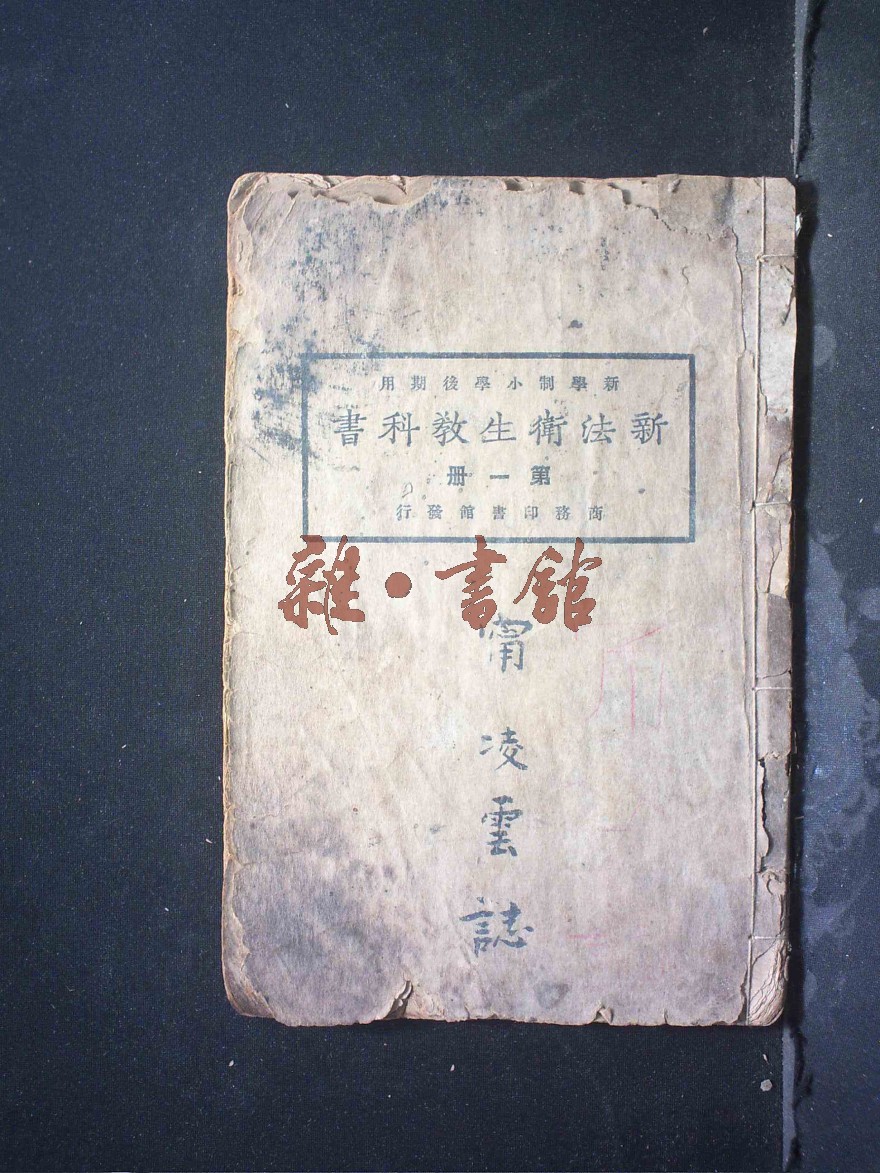 新學制小學後期用
新法衛生教科書
第一册
商務印書館發行
雜·書館
甯
凌
雲
誌